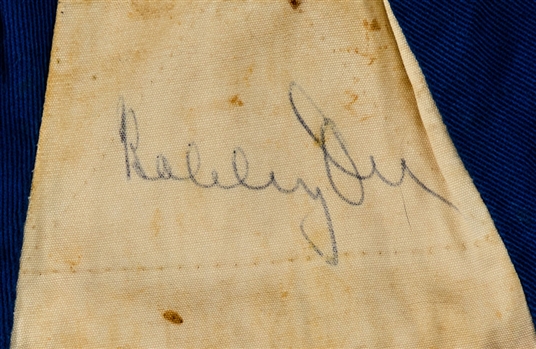 Bobby Orr